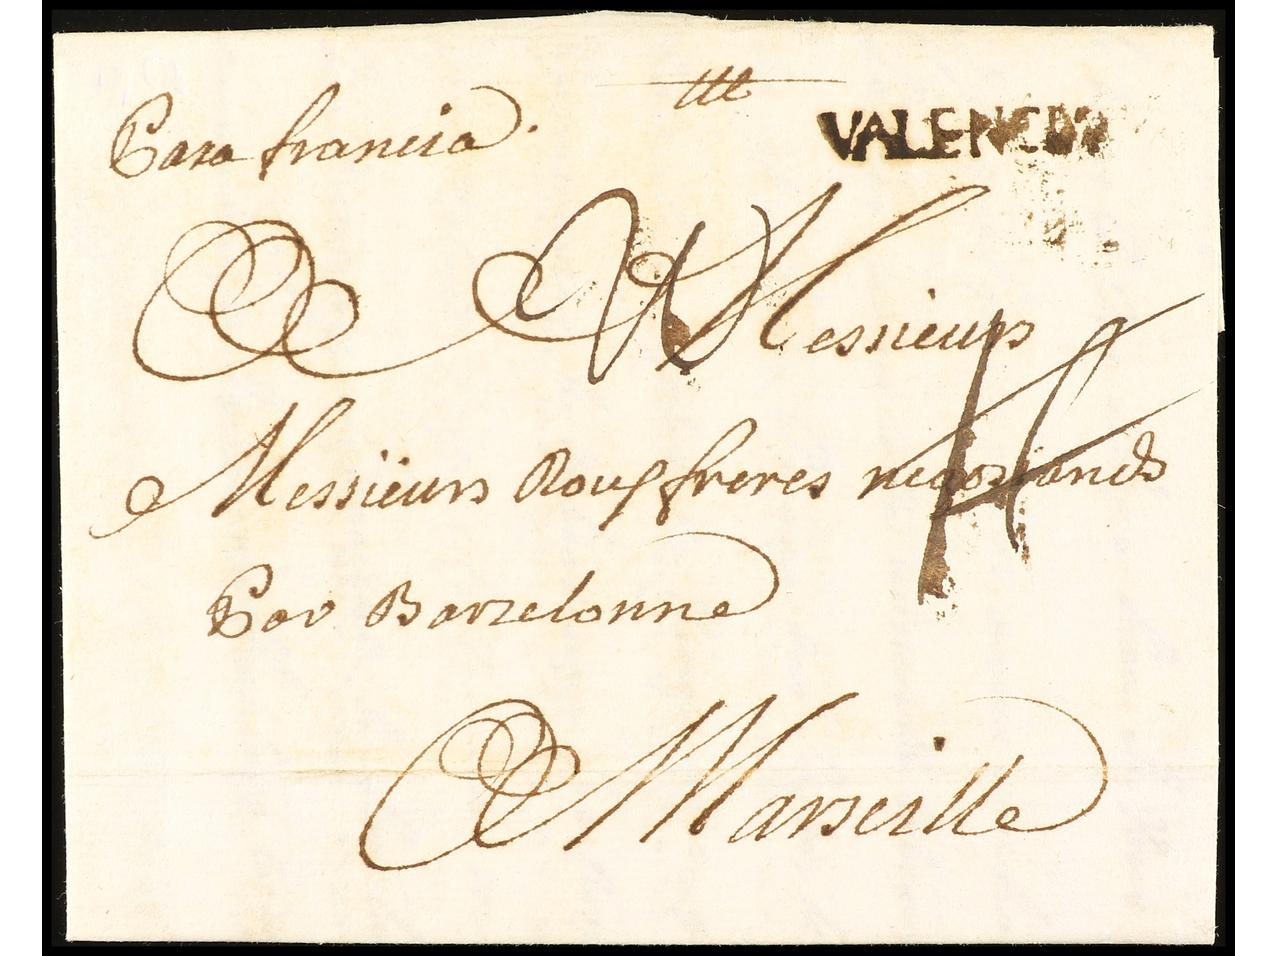 Para francia.
VALENCIA
A Messieurs
Messieurs Roux freres negossiands
Par Barzelonne
A Marseille